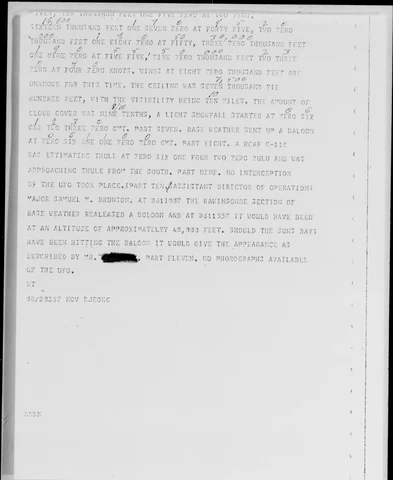 FIVE, TEN THOUSANDS FEET ONE FIVE ZERO AT TWO ZERO,
16,000 1 7 0 4 5 2 0
SIXTEEN THOUSAND FEET ONE SEVEN ZERO AT FORTY FIVE, TWO ZERO
,000 1 8 0 50 30,000
THOUSAND FEET ONE EIGHT ZERO AT FIFTY, THREE ZERO THOUSAND FEET
1 9 0 5 5 50 000
ONE NINE ZERO AT FIVE FIVE, FIVE ZERO THOUSAND FEET TWO THREE
ZERO AT FOUR ZERO KNOTS, WINDS AT EIGHT ZERO THOUSAND FEET ARE
7,500
UNKNOWN FOR THIS TIME. THE CEILING WAS SEVEN THOUSAND FIE
HUNDRED FEET, WITH THE VISIBILITY BEING TEN MILES. THE AMOUNT OF
9/10 0 6
CLOUD COVER WAS NINE TENTHS, A LIGHT SNOWFALL STARTED AT ZERO SIX
1 2 3 0
ONE TWO THREE ZERO GMT. PART SEVEN. BASE WEATHER SENT UP A BALOON
0 6 1 1 0 0
AT ZERO SIX ONE ONE ZERO ZERO GMT. PART EIGHT. A RCAF C-119
WAS ESTIMATING THULE AT ZERO SIX ONE FOUR TWO ZERO ZULU AND WAS
APPROACHING THULE FROM THE SOUTH. PART NINE. NO INTERCEPTION
OF THE UFO TOOK PLACE. PART TEN. ASSISTANT DIRECTOR OF OPERATIONS
MAJOR SAMUEL M. BRUNION. AT THE RAWINSONDE SECTION OF
BASE WEATHER REALEASED A BOLOON AND AT IT WOULD HAVE BEEN
AT AN ALTITUDE OF APPROXIMATELYY FEET. SHOULD THE SUNS RAYS
HAVE BEEN HITTING THE BALOON IT WOULD GIVE THE APPEARANCE AS
DESCRIBED BY MR. . PART ELEVEN. NO PHOROGRAPHS AVAILABLE
OF THE UFO.
BT
NOV RJEDKC
NNNN